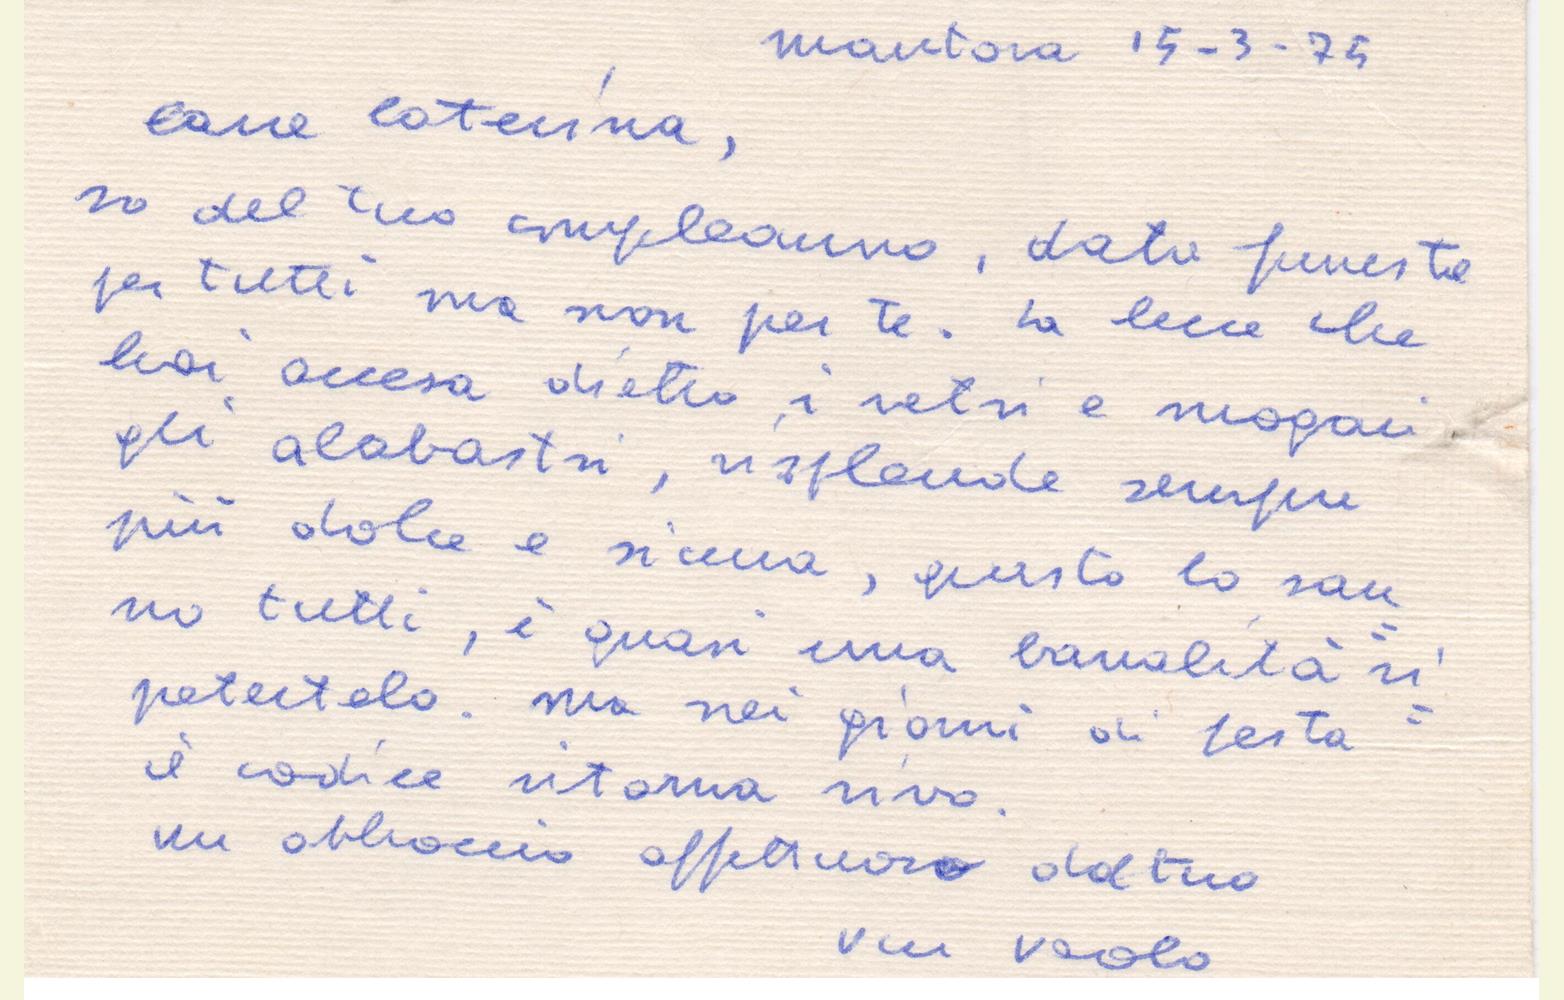 mantova 15-3-75
cara caterina,
so del tuo compleanno, data funesta
per tutti ma non per te. la luce che
hai accesa dietro i vetri e magari
gli alabastri, risplende sempre
più dolce e sicura, questo lo san=
no tutti, è quasi una banalità ri=
petertelo. ma nei giorni di festa
il codice ritorna vivo.
un abbraccio affettuoso dal tuo